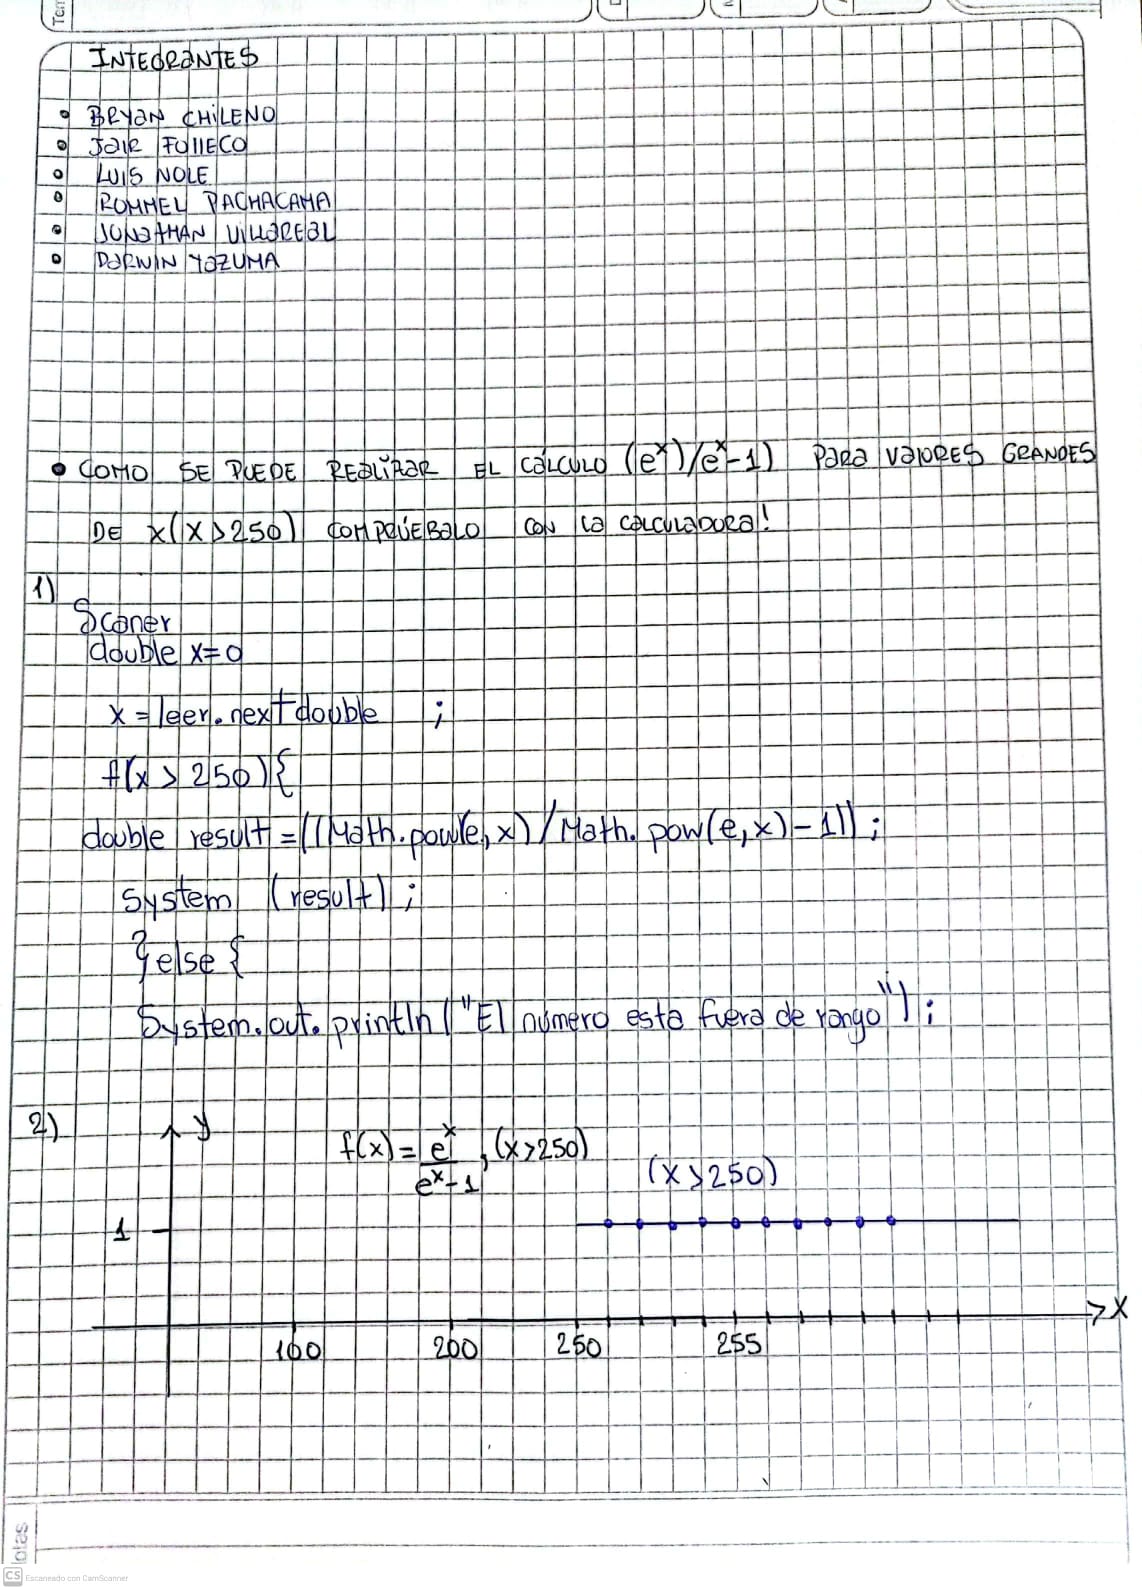 Tem
INTEGRANTES
• BRYAN CHILENO
• JAIR FOLLECO
• LUIS NOLE
• ROMMEL PACHACAMA
• JONATHAN VILLAREAL
• DARWIN YAZUMA
• COMO SE PUEDE REALIZAR EL CALCULO (e^x)/e^x-1) PARA VALORES GRANDES
DE x(x>250) COMPRUÉBALO CON LA CALCULADORA!
1)
Scaner
double x=0
x = leer.nextdouble ;
f(x > 250){
double result = ((Math.pow(e,x)/Math.pow(e,x)-1));
System (result);
}else{
System.out.println("El número esta fuera de rango");
2)
y
f(x) = e^x / e^x-1 , (x>250)
(x>250)
1
x
100 200 250 255
otas
CS Escaneado con CamScanner